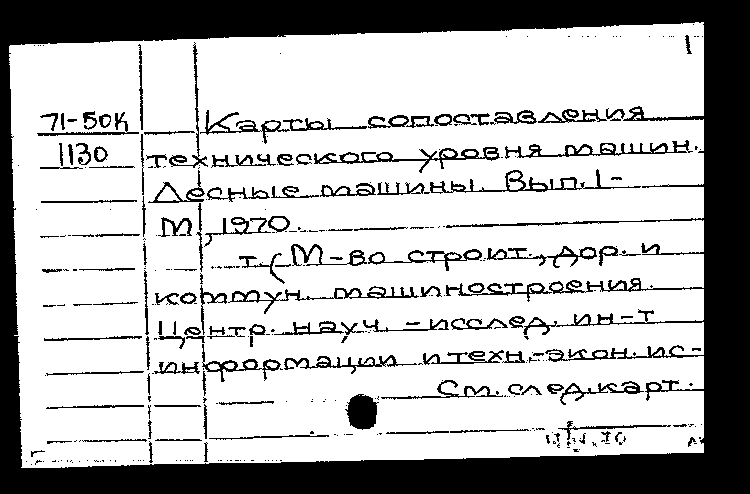 1
71-50к Карты сопоставления
1130 технического уровня машин.
Лесные машины. Вып. 1-
М, 1970.
т. (М-во строит., дор. и
коммун. машиностроения.
Центр. науч. -исслед. ин-т
информации и техн.-экон. ис-
См. след. карт.